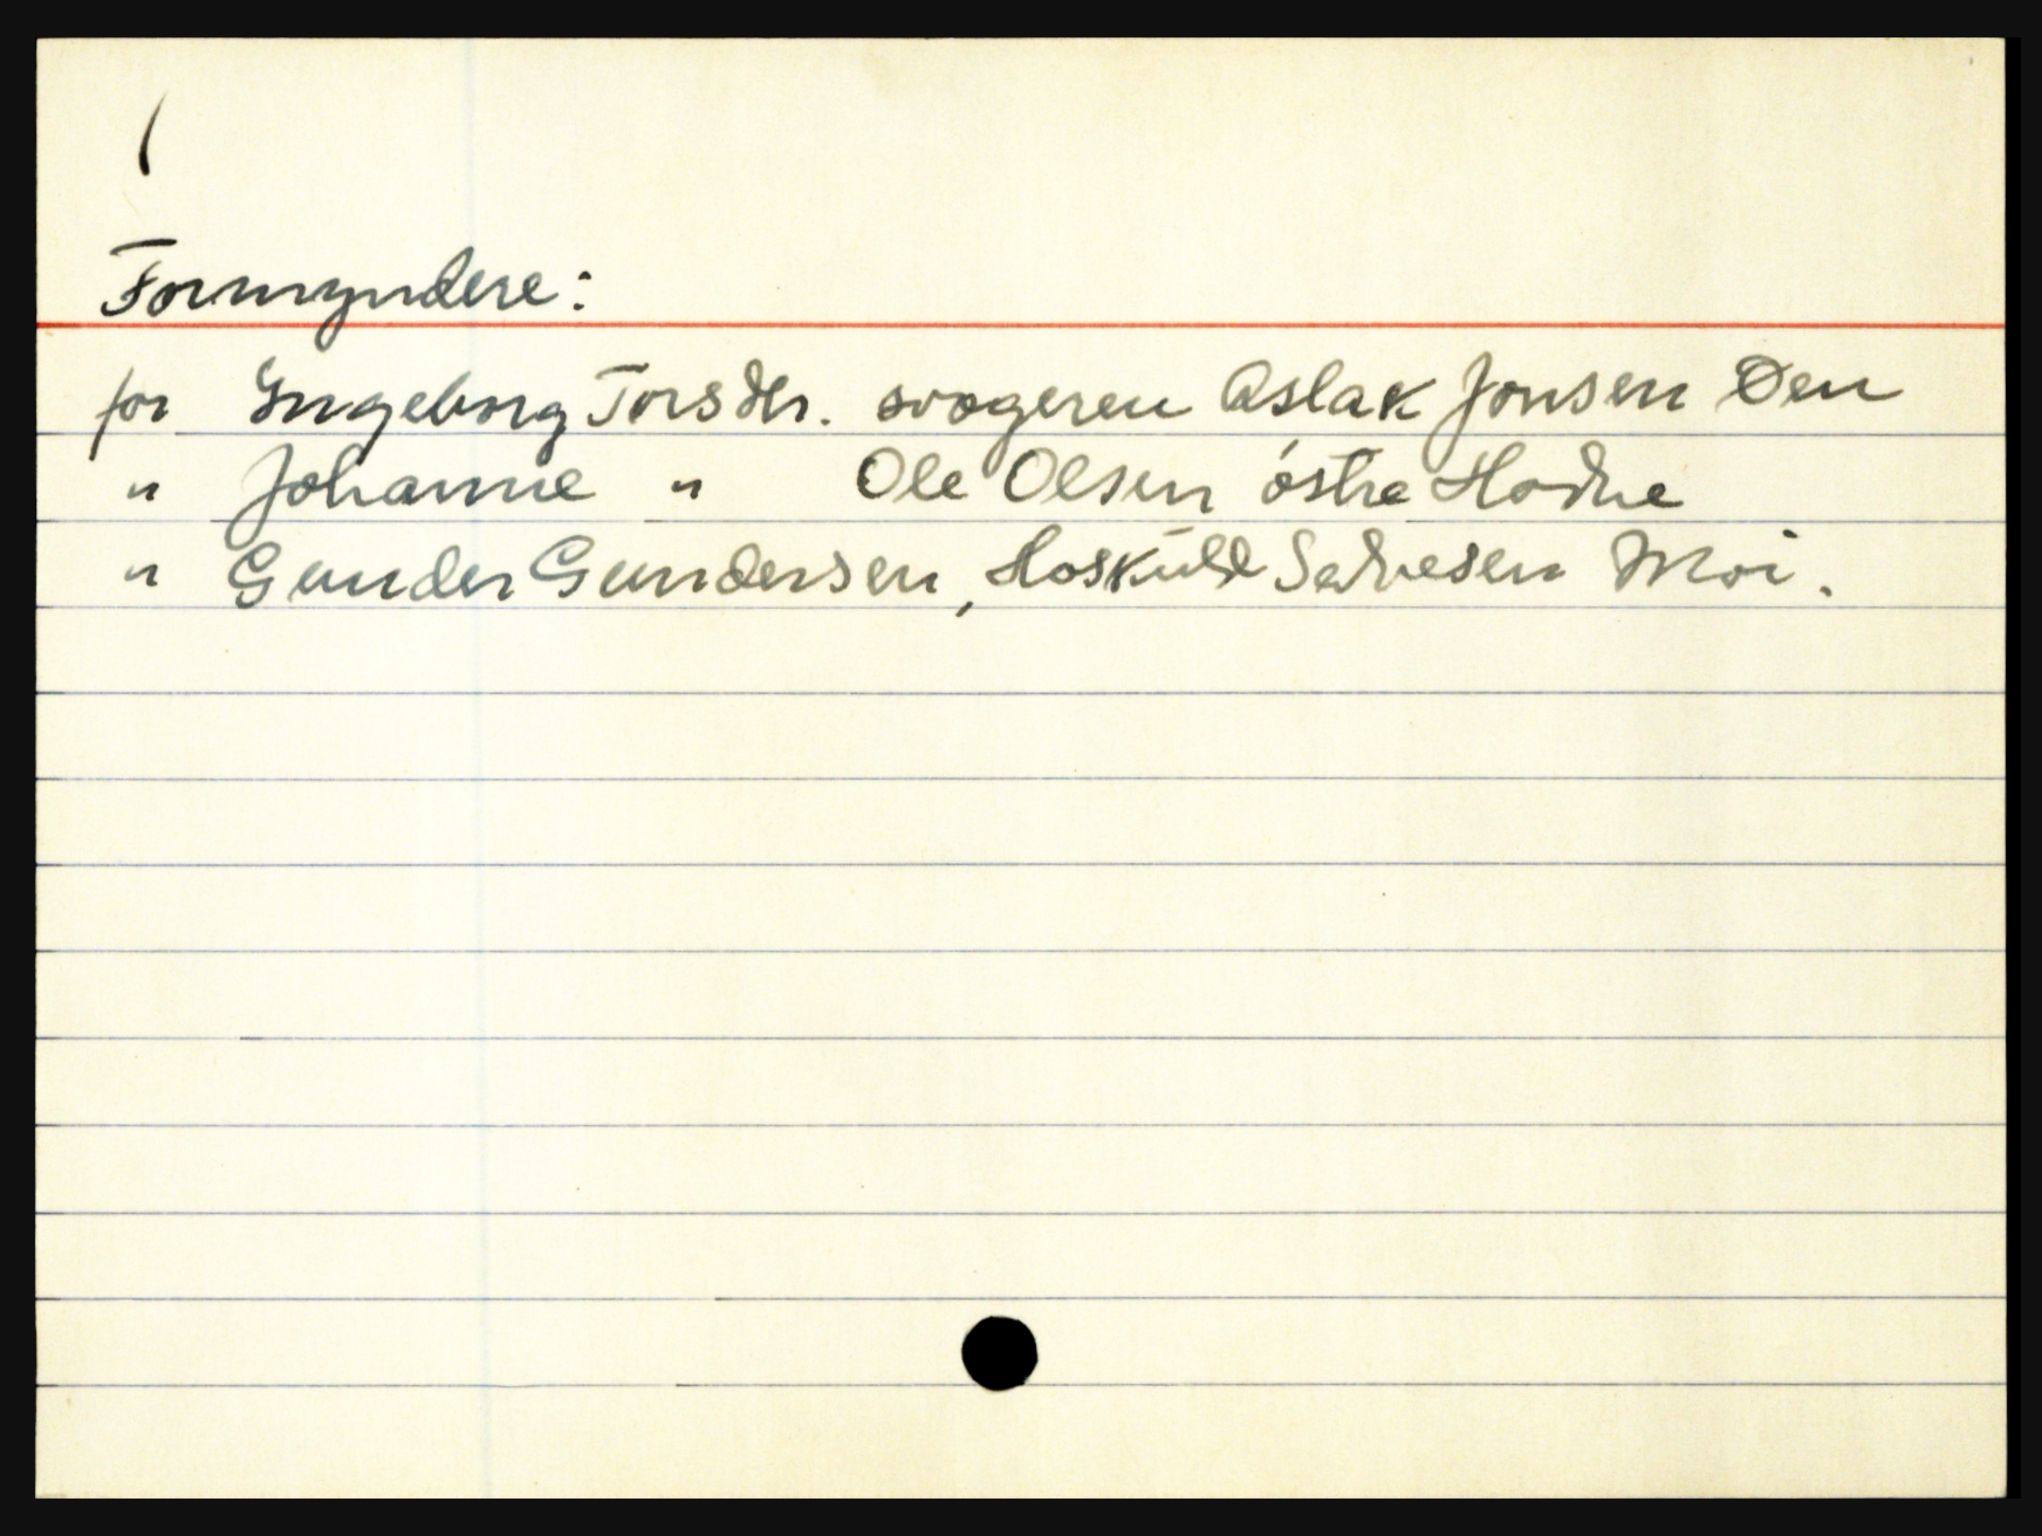 Formyndere:
for Ingeborg Torsdtr. svogeren Aslak Jonsen Øen
" Johanne " Ole Olsen østre Hodne
" Gunder Gundersen, Hoskuld Salvesen Moi.